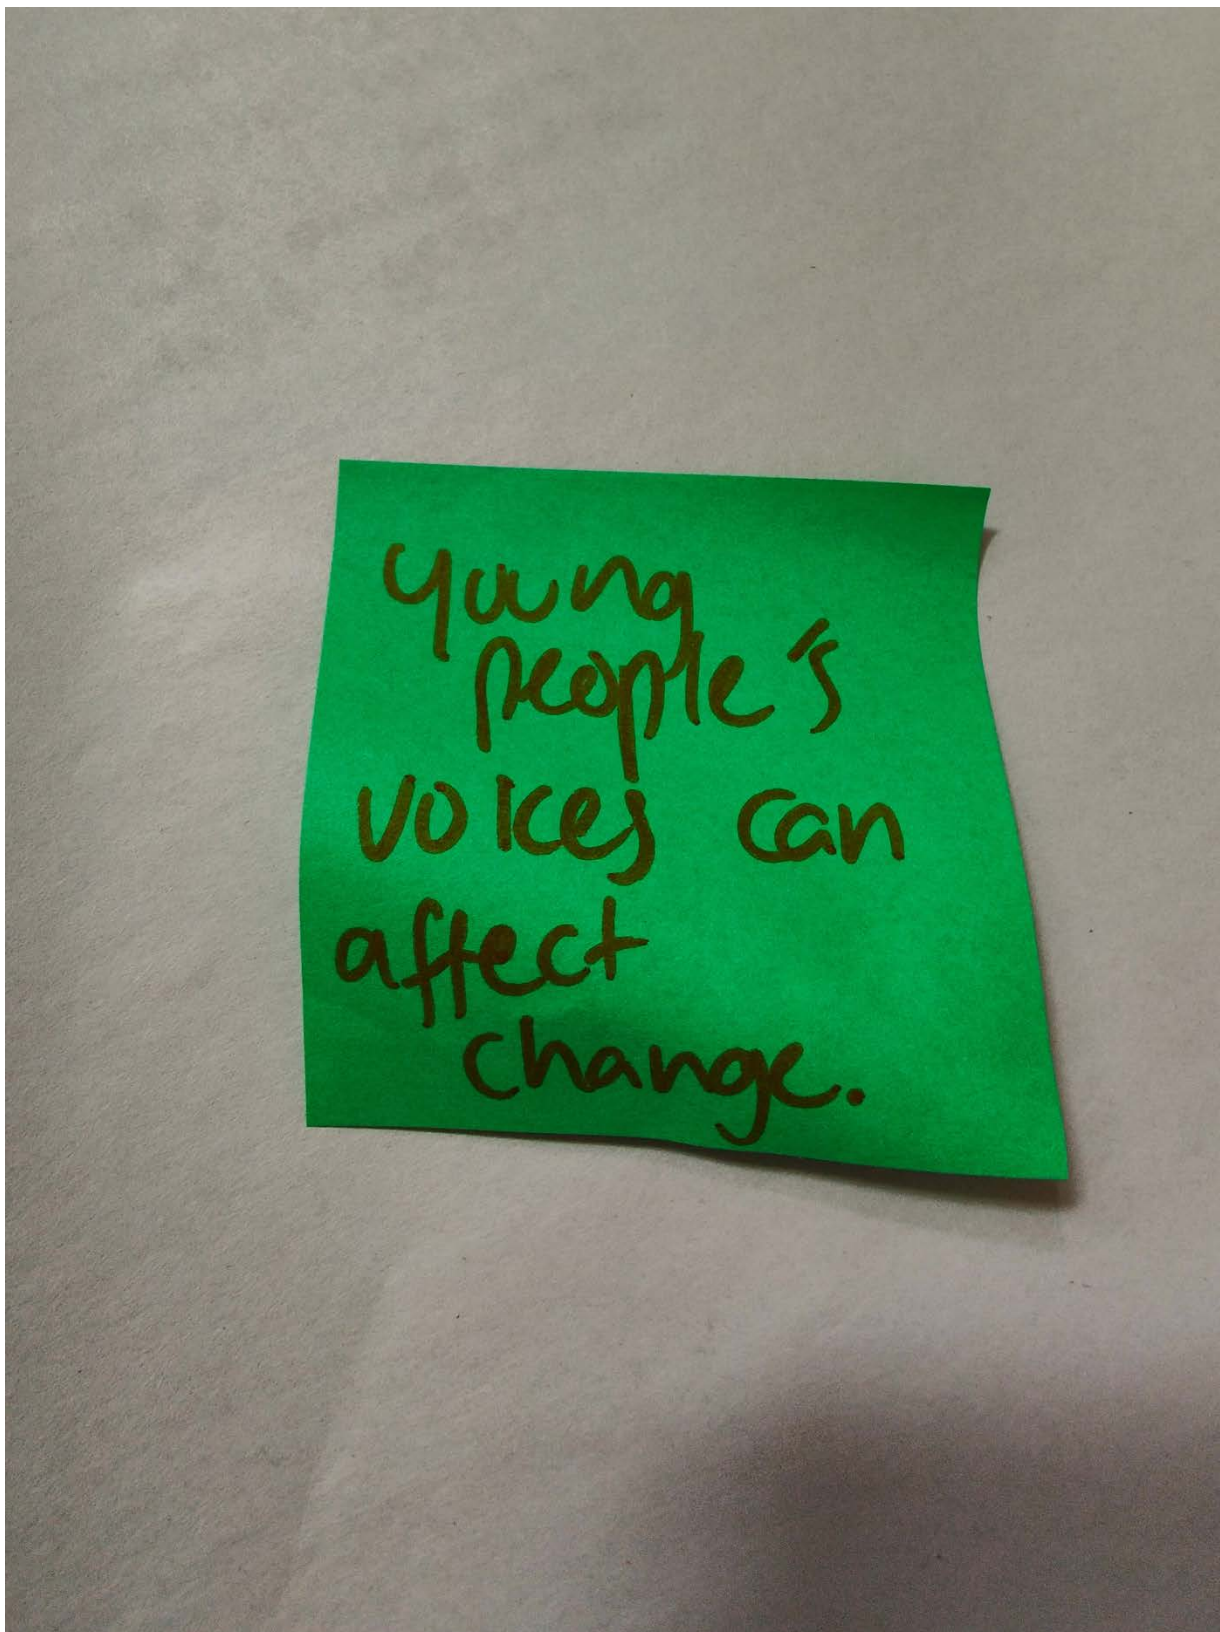 young
people's
voices can
affect
change.